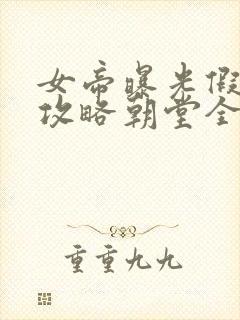 女帝曝光假
攻略朝堂全
重重九九